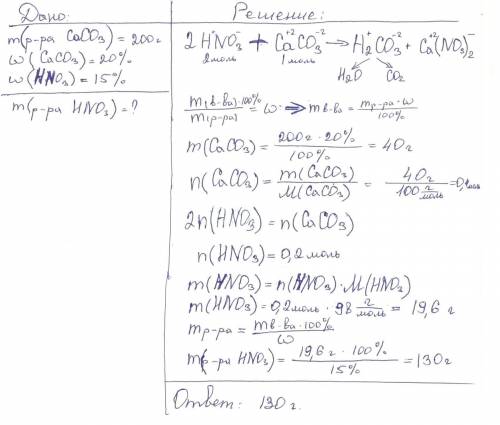 Дано:
m(р-ра CaCO₃) = 200г
ω (CaCO₃) = 20%
ω (HNO₃) = 15%
m(р-ра HNO₃) = ?
Решение:
2H⁺NO₃⁻ + Ca⁺²CO₃⁻² → H₂⁺CO₃⁻² + Ca⁺²(NO₃)₂⁻
2моль 1моль
H₂O CO₂
m(в-ва)·100% / m(р-ра) = ω ⇒ mв-ва = mр-ра·ω / 100%
m(CaCO₃) = 200г·20% / 100% = 40г
n(CaCO₃) = m(CaCO₃) / M(CaCO₃) = 40г / 100 г/моль = 0,4моль
2n(HNO₃) = n(CaCO₃)
n(HNO₃) = 0,2моль
m(HNO₃) = n(HNO₃)·M(HNO₃)
m(HNO₃) = 0,2моль · 98 г/моль = 19,6 г
mр-ра = mв-ва·100% / ω
m(р-ра HNO₃) = 19,6г · 100% / 15% = 130г
Ответ: 130г.